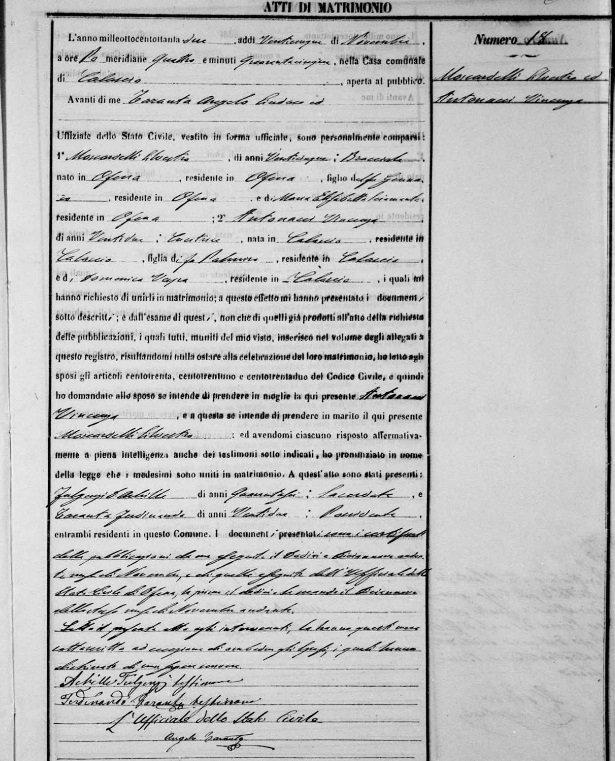 ATTI DI MATRIMONIO
Numero 18.
Moscardelli Silvestro ed
Antonacci Vincenza
L'anno milleottocentottanta due, addì Venticinque di Novembre,
a ore Po meridiane quattro e minuti Quarantacinque, nella Casa comunale
di Calascio, aperta al pubblico.
Avanti di me Taranta Angelo Sindaco ed
Uffiziale dello Stato Civile, vestito in forma uffiziale, sono personalmente comparsi:
1° Moscardelli Silvestro, di anni Venticinque; Bracciante,
nato in Ofena, residente in Ofena, figlio del fu
, residente in Ofena e di Maria
residente in Ofena; 2° Antonacci Vincenza
di anni Ventidue; , nata in Calascio, residente in
Calascio, figlia di fu , residente in Calascio
e di Domenica , residente in Calascio, i quali mi
hanno richiesto di unirli in matrimonio; a questo effetto mi hanno presentato i documenti
sotto descritti; e dall'esame di questi, non che di quelli già prodotti all'atto della richiesta
delle pubblicazioni, i quali tutti, muniti del mio visto, inserisco nel volume degli allegati a
questo registro, risultandomi nulla ostare alla celebrazione del loro matrimonio, ho letto agli
sposi gli articoli centotrenta, centotrentuno e centotrentadue del Codice Civile, e quindi
ho domandato allo sposo se intende di prendere in moglie la qui presente Antonacci
Vincenza, e a questa se intende di prendere in marito il qui presente
Moscardelli Silvestro; ed avendomi ciascuno risposto affermativa-
mente a piena intelligenza anche dei testimoni sotto indicati, ho pronunziato in nome
della legge che i medesimi sono uniti in matrimonio. A quest'atto sono stati presenti:
Fulgenzi D. Achille di anni ; Sacerdote, e
Taranta Ferdinando di anni Ventidue; Possidente,
entrambi residenti in questo Comune. I documenti presentati sono i certificati
delle pubblicazioni da me eseguite il dodici e
di Novembre, e di quelle eseguite dall'Uffiziale dello
Stato Civile di Ofena, la prima il dodici e la seconda il
dello stesso mese di Novembre andante.
Letto il presente atto agli intervenuti, lo hanno questi meco
sottoscritto ad eccezione di ambedue gli sposi, i quali hanno
dichiarato di
Achille Fulgenzi testimone
Ferdinando Taranta testimone
L'Uffiziale dello Stato Civile
Angelo Taranta